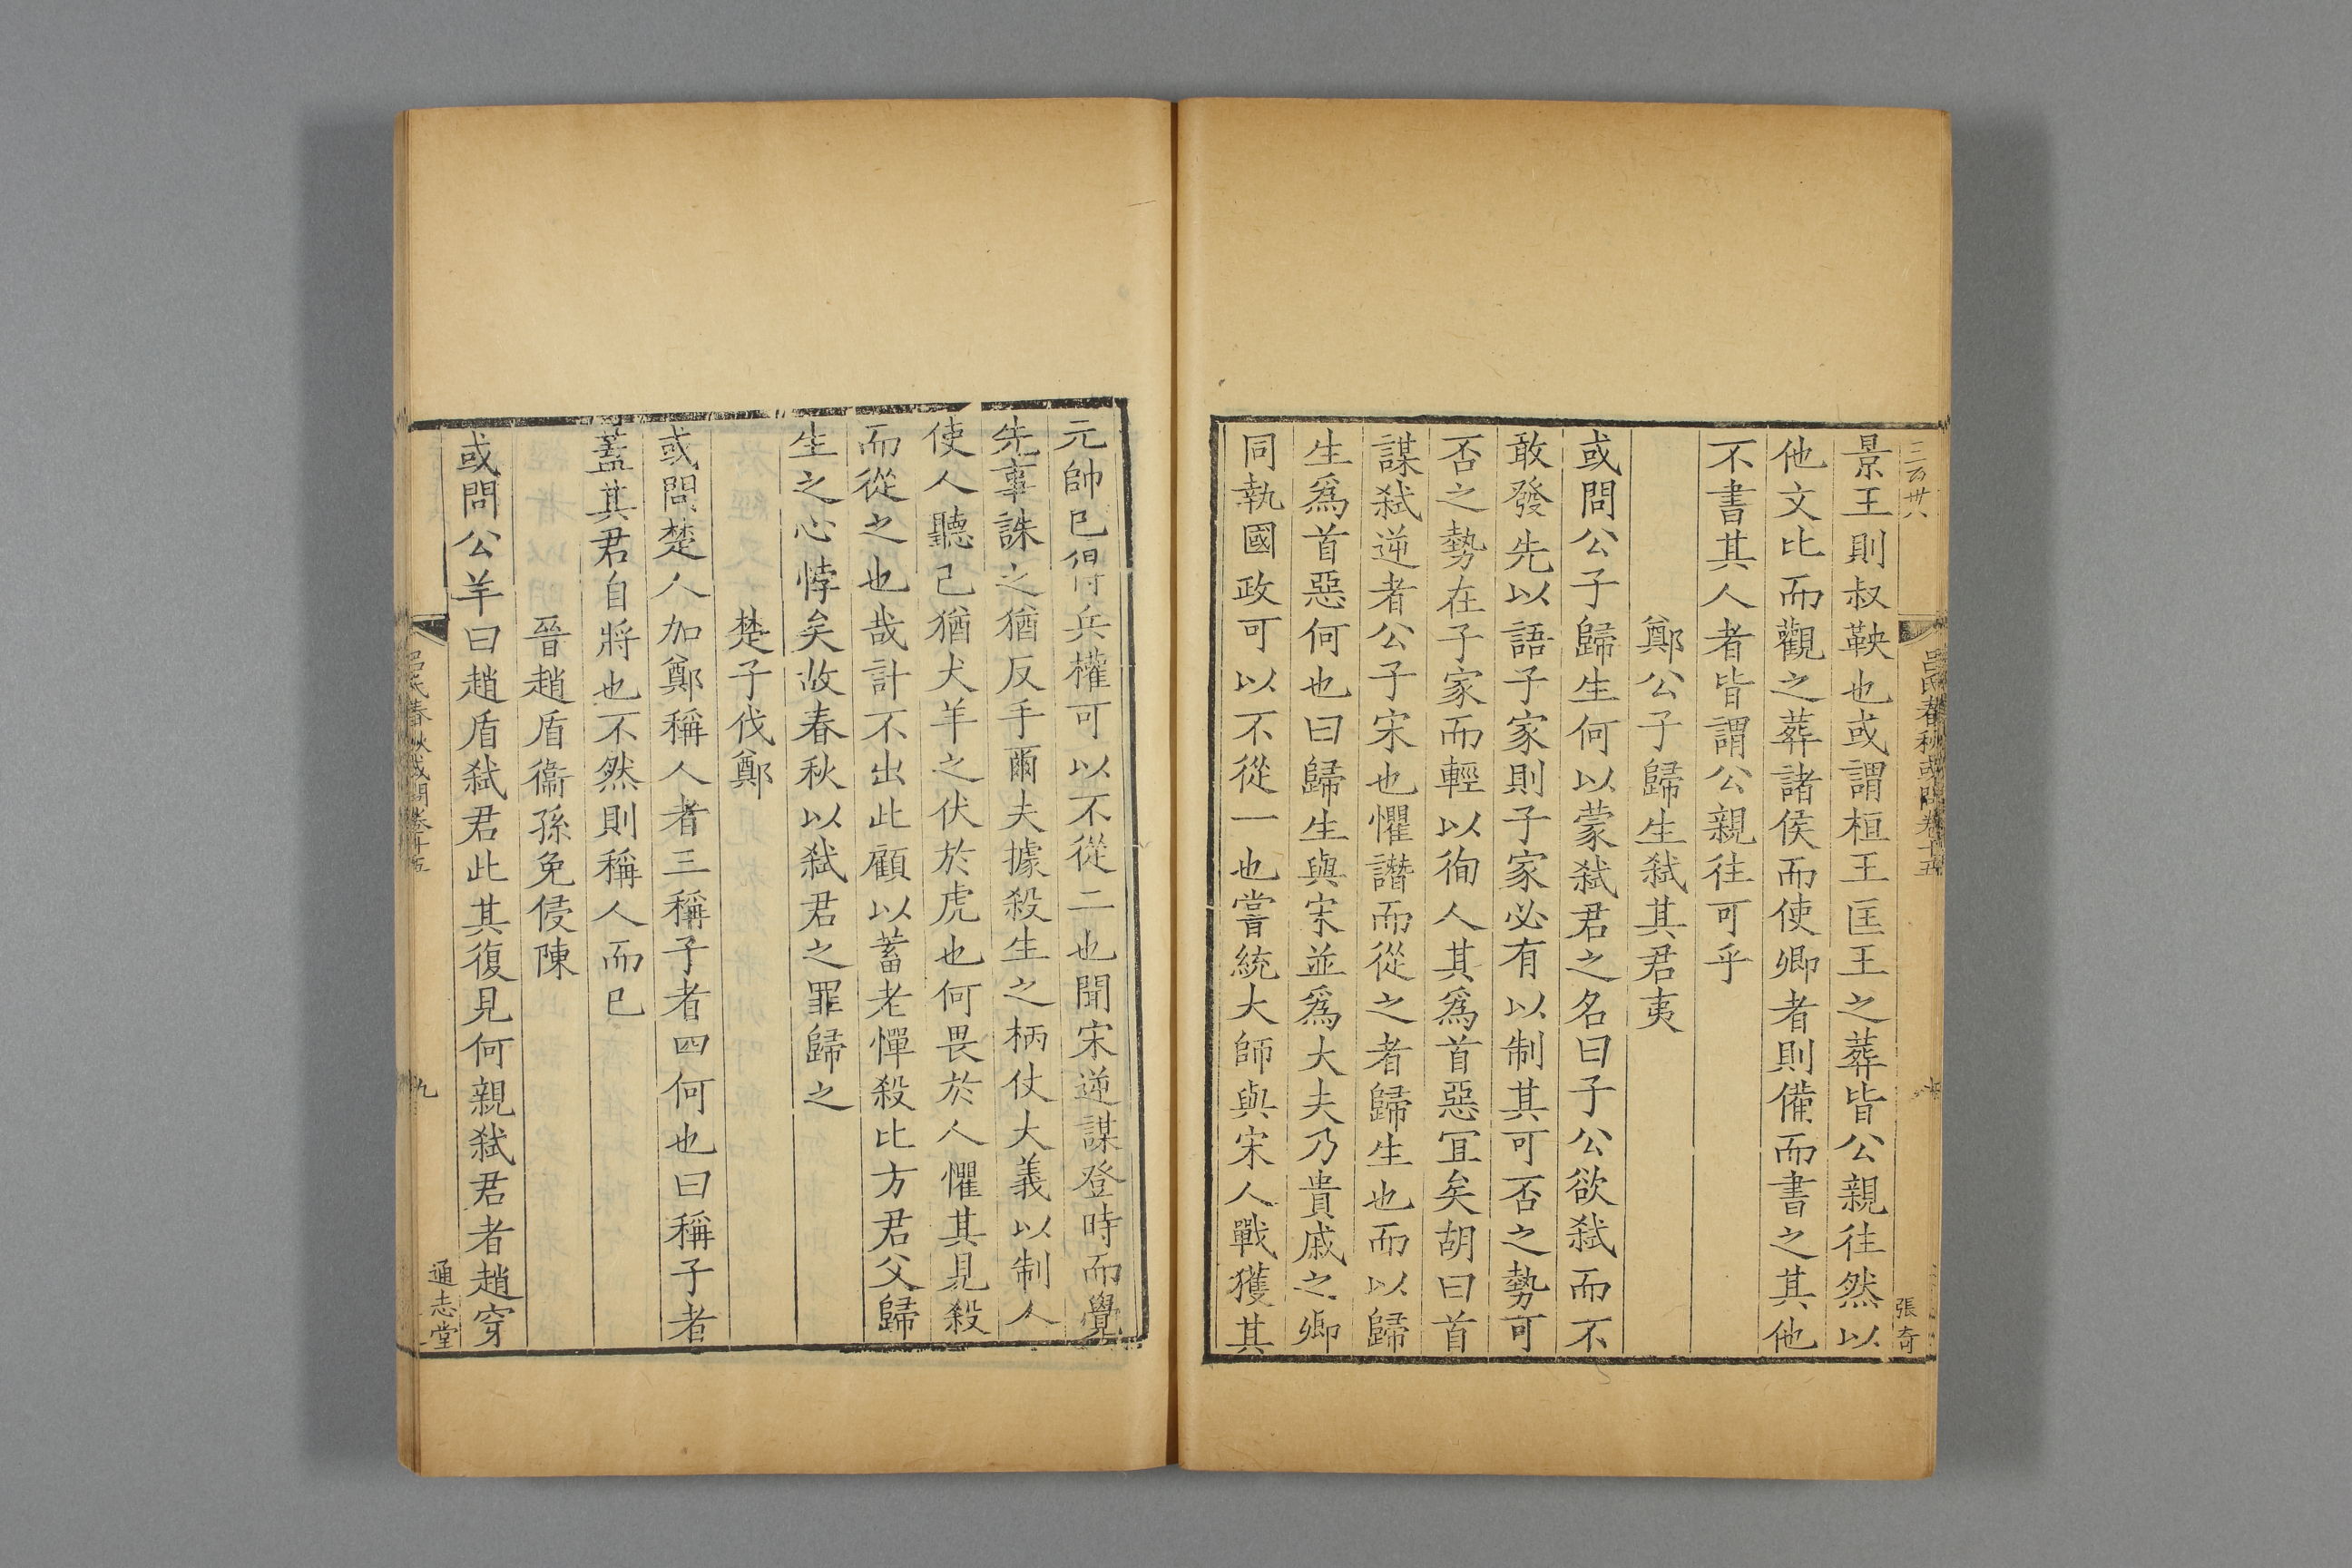 三百卅八
呂氏春秋或問卷十五
張奇
景王則叔鞅也或謂桓王匡王之葬皆公親往然以
他文比而觀之葬諸侯而使卿者則備而書之其他
不書其人者皆謂公親往可乎
鄭公子歸生弑其君夷
或問公子歸生何以蒙弑君之名曰子公欲弑而不
敢發先以語子家則子家必有以制其可否之勢可
否之勢在子家而輕以徇人其爲首惡宜矣胡曰首
謀弑逆者公子宋也懼譖而從之者歸生也而以歸
生爲首惡何也曰歸生與宋並爲大夫乃貴戚之卿
同執國政可以不從一也嘗統大師與宋人戰獲其
元帥已得兵權可以不從二也聞宋逆謀登時而覺
先事誅之猶反手爾夫據殺生之柄仗大義以制人
使人聽己猶犬羊之伏於虎也何畏於人懼其見殺
而從之也哉計不出此顧以蓄老憚殺比方君父歸
生之心悖矣故春秋以弑君之罪歸之
楚子伐鄭
或問楚人加鄭稱人者三稱子者四何也曰稱子者
蓋其君自將也不然則稱人而已
晉趙盾衞孫免侵陳
或問公羊曰趙盾弑君此其復見何親弑君者趙穿
呂氏春秋或問卷十五
九
通志堂